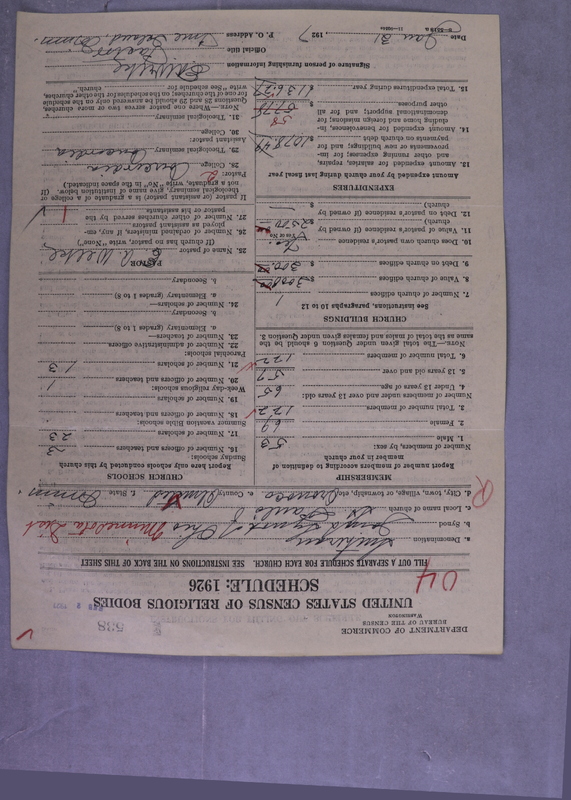 DEPARTMENT OF COMMERCE
BUREAU OF THE CENSUS
WASHINGTON
538
UNITED STATES CENSUS OF RELIGIOUS BODIES
SCHEDULE: 1926
04
FILL OUT A SEPARATE SCHEDULE FOR EACH CHURCH. SEE INSTRUCTIONS ON THE BACK OF THIS SHEET
a. Denomination Lutheran
b. Synod Joint Synod of Ohio Minnesota Dist
c. Local name of church St Pauls
d. City, town, village, or township, etc. e. County Olmsted f. State Minn
R
MEMBERSHIP
Report number of members according to definition of member in your church
Number of members, by sex:
1. Male 53
2. Female 69
3. Total number of members 122
Number of members under and over 13 years old:
4. Under 13 years of age 65
5. 13 years old and over 57
6. Total number of members 122
NOTE.—The total given under Question 6 should be the same as the total of males and females given under Question 3.
CHURCH BUILDINGS
See instructions, paragraphs 10 to 12
7. Number of church edifices 1
8. Value of church edifices $ 3000
9. Debt on church edifices $ 300
10. Does church own pastor's residence Yes
(Yes or No)
11. Value of pastor's residence (if owned by church) $ 2500
12. Debt on pastor's residence (if owned by church) $
EXPENDITURES
Amount expended by your church during last fiscal year
13. Amount expended for salaries, repairs, and other running expenses; for improvements or new buildings; and for payments on church debt $ 1078.49
14. Amount expended for benevolences, including home and foreign missions; for denominational support; and for all other purposes $
58
15. Total expenditures during year $
CHURCH SCHOOLS
Report here only schools conducted by this church
Sunday schools:
16. Number of officers and teachers 3
17. Number of scholars 23
Summer vacation Bible schools:
18. Number of officers and teachers
19. Number of scholars
Week-day religious schools:
20. Number of officers and teachers 1
21. Number of scholars 13
Parochial schools:
22. Number of administrative officers
23. Number of teachers—
a. Elementary (grades 1 to 8)
b. Secondary
24. Number of scholars—
a. Elementary (grades 1 to 8)
b. Secondary
PASTOR
25. Name of pastor E. A. Welke
(If church has no pastor, write "None")
26. Number of ordained ministers, if any, employed as assistant pastors
27. Number of other churches served by the pastor or his assistants 1
If pastor (or assistant pastor) is a graduate of a college or theological seminary, give name of institution below. (If not a graduate, write "No" in the space indicated.)
Pastor: 2
28. College
29. Theological seminary
Assistant pastor:
30. College
31. Theological seminary
NOTE.—Where one pastor serves two or more churches, Questions 28 and 29 should be answered only on the schedule for one of the churches; on the schedules for the other churches, write "See schedule for church."
Signature of person furnishing information
E. A. Welke
Official title Pastor
P. O. Address
Date Jan 31, 1927